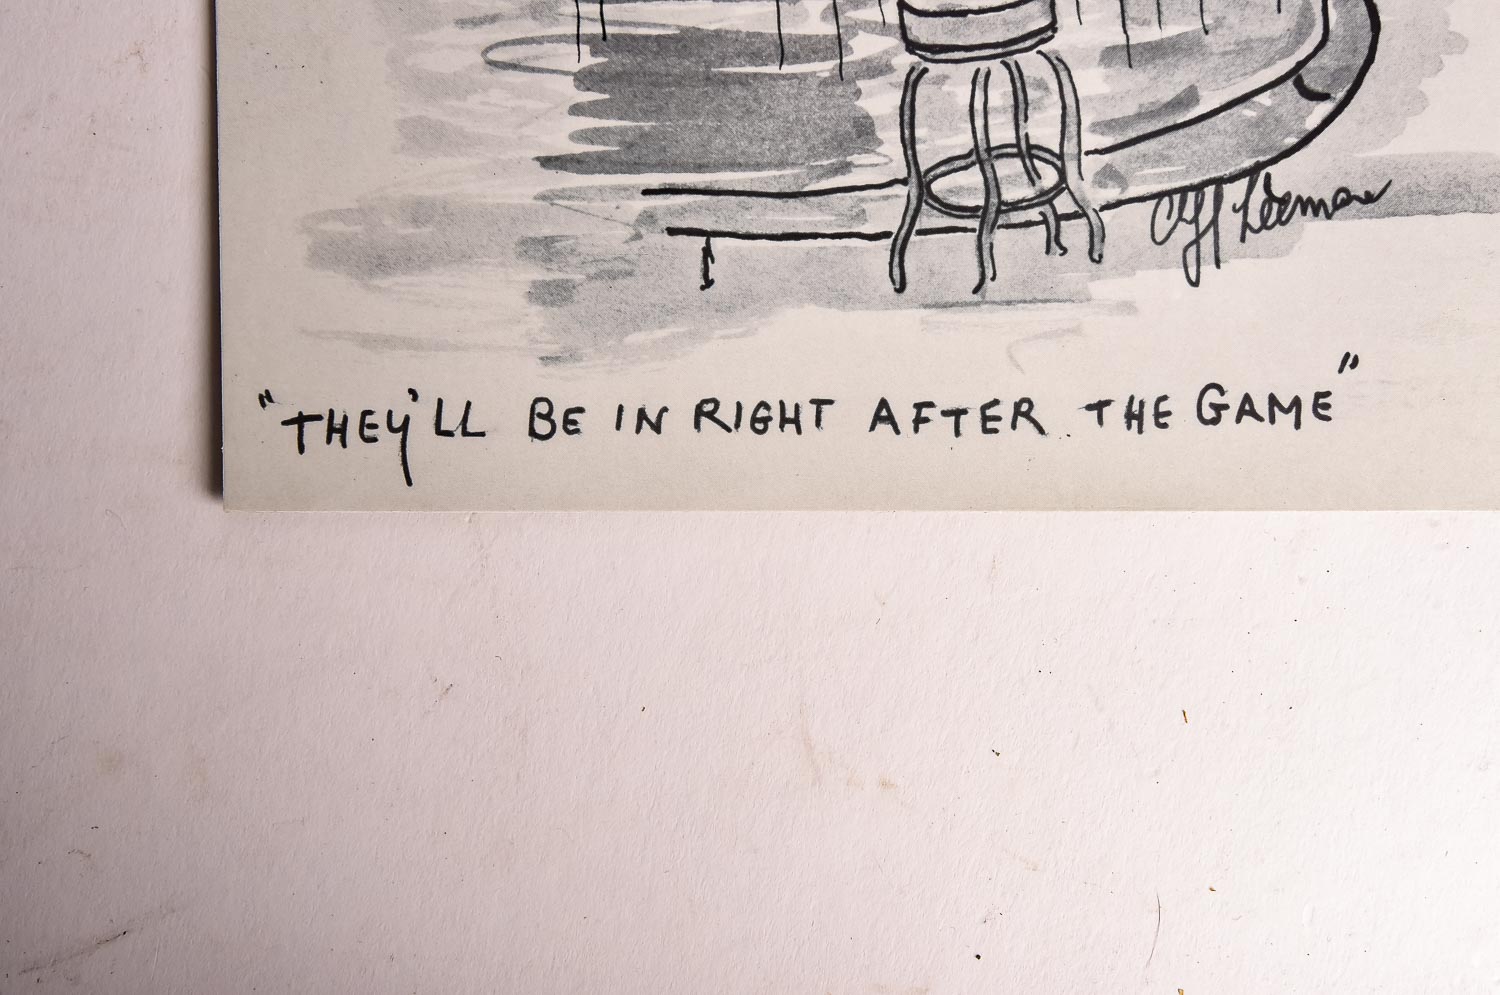 Cliff Leeman
"THEY'LL BE IN RIGHT AFTER THE GAME"